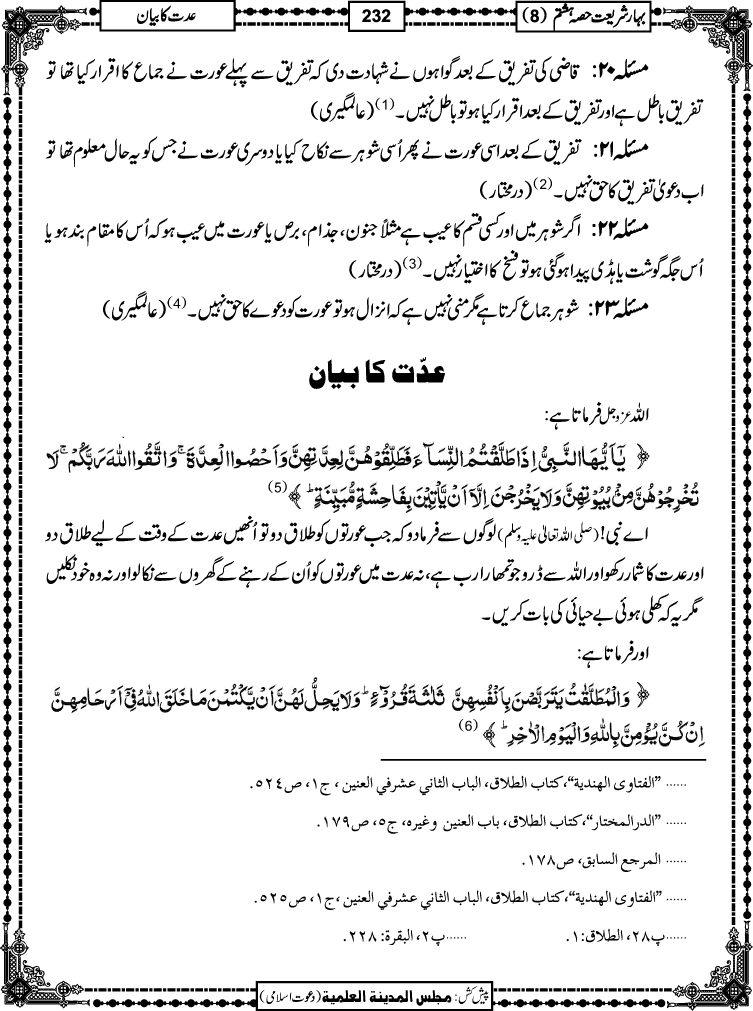 بہارِ شریعت حصہ ہشتم (8)
232
عدت کا بیان
مسئلہ ۲۰: قاضی کی تفریق کے بعد گواہوں نے شہادت دی کہ تفریق سے پہلے عورت نے جماع کا اقرار کیا تھا تو
تفریق باطل ہے اور تفریق کے بعد اقرار کیا ہو تو باطل نہیں۔ (1) (عالمگیری)
مسئلہ ۲۱: تفریق کے بعد اسی عورت نے پھر اُسی شوہر سے نکاح کیا یا دوسری عورت نے جس کو یہ حال معلوم تھا تو
اب دعویٰ تفریق کا حق نہیں۔ (2) (درمختار)
مسئلہ ۲۲: اگر شوہر میں اور کسی قسم کا عیب ہے مثلاً جنون، جذام، برص یا عورت میں عیب ہو کہ اُس کا مقام بند ہو یا
اُس جگہ گوشت یا ہڈی پیدا ہوگئی ہو تو فسخ کا اختیار نہیں۔ (3) (درمختار)
مسئلہ ۲۳: شوہر جماع کرتا ہے مگر منی نہیں ہے کہ انزال ہو تو عورت کو دعوے کا حق نہیں۔ (4) (عالمگیری)
عدّت کا بیان
اللہ عزوجل فرماتا ہے:
﴿ یٰۤاَیُّهَا النَّبِیُّ اِذَا طَلَّقْتُمُ النِّسَآءَ فَطَلِّقُوْهُنَّ لِعِدَّتِهِنَّ وَ اَحْصُوا الْعِدَّةَ ۚ وَ اتَّقُوا اللّٰهَ رَبَّكُمْ ۚ لَا
تُخْرِجُوْهُنَّ مِنْۢ بُیُوْتِهِنَّ وَ لَا یَخْرُجْنَ اِلَّاۤ اَنْ یَّاْتِیْنَ بِفَاحِشَةٍ مُّبَیِّنَةٍ ؕ ﴾ (5)
اے نبی! (صلی اللہ تعالیٰ علیہ وسلم) لوگوں سے فرمادو کہ جب عورتوں کو طلاق دو تو اُنھیں عدت کے وقت کے لیے طلاق دو
اور عدت کا شمار رکھو اور اللہ سے ڈرو جو تمھارا رب ہے، نہ عدت میں عورتوں کو اُن کے رہنے کے گھروں سے نکالو اور نہ وہ خود نکلیں
مگر یہ کہ کھلی ہوئی بے حیائی کی بات کریں۔
اور فرماتا ہے:
﴿ وَ الْمُطَلَّقٰتُ یَتَرَبَّصْنَ بِاَنْفُسِهِنَّ ثَلٰثَةَ قُرُوْٓءٍ ؕ وَ لَا یَحِلُّ لَهُنَّ اَنْ یَّكْتُمْنَ مَا خَلَقَ اللّٰهُ فِیْۤ اَرْحَامِهِنَّ
اِنْ كُنَّ یُؤْمِنَّ بِاللّٰهِ وَ الْیَوْمِ الْاٰخِرِ ؕ ﴾ (6)
...... "الفتاوى الهندية"، كتاب الطلاق، الباب الثاني عشر في العنين ، ج١، ص٥٢٤.
...... "الدرالمختار"، كتاب الطلاق، باب العنين وغيره، ج٥، ص١٧٩.
...... المرجع السابق، ص١٧٨.
...... "الفتاوى الهندية"، كتاب الطلاق، الباب الثاني عشر في العنين ، ج١، ص٥٢٥.
......پ٢٨، الطلاق:١. ......پ٢، البقرة: ٢٢٨.
پیش کش: مجلس المدینۃ العلمیۃ (دعوت اسلامی)